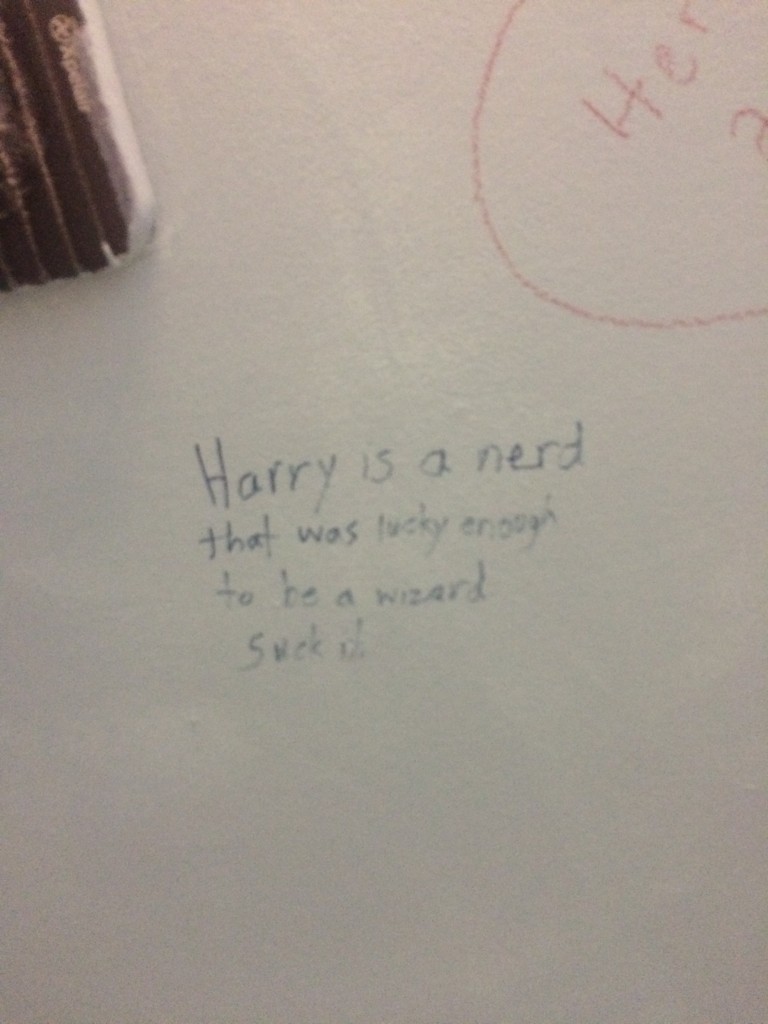 Her
Harry is a nerd
that was lucky enough
to be a wizard
suck it